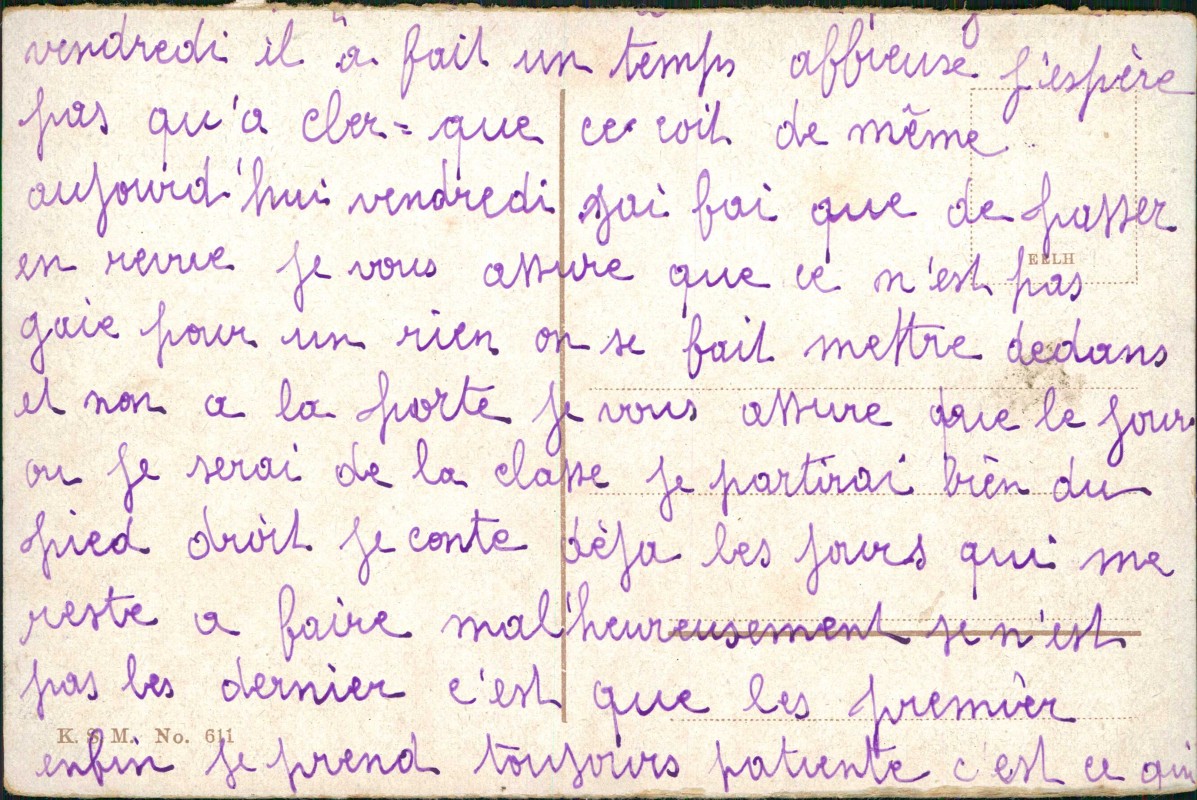 vendredi il a fait un temps affreuse j'espère
pas qu'a cler=que ce soit de même
aujourd'hui vendredi j'ai fai que de passer
EELH
en revue je vous assure que ce n'est pas
gaie pour un rien on se fait mettre dedans
et non a la porte je vous assure que le jour
ou je serai de la classe je partirai bien du
pied droit je conte déja les jours qui me
reste a faire mal'heureusement se n'est
pas les dernier c'est que les premier
K. S. M. No. 611
enfin je prend toujours patiente c'est ce qui